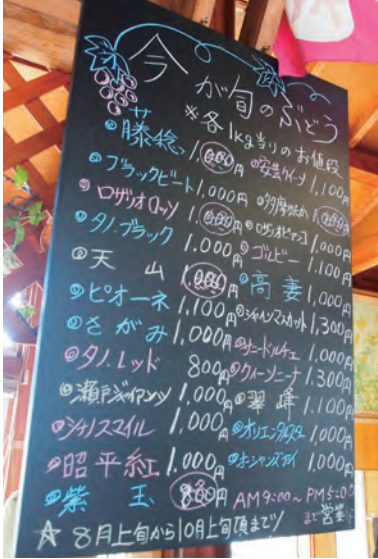 今が旬のぶどう
※各1kg当りのお値段
藤稔 1,000円
ブラックビート 1,000円
ロザリオロッソ 1,000円
タノブラック 1,000円
天山 1,000円
ピオーネ 1,100円
さがみ 1,000円
タノレッド 800円
瀬戸ジャイアンツ 1,000円
シナノスマイル 1,000円
昭平紅 1,000円
紫玉 800円
安芸クイーン 1,100円
多摩ゆたか 1,000円
ロザリオビアンコ 1,000円
ゴルビー 1,100円
高妻 1,000円
シャインマスカット 1,300円
1,000円
クイーンニーナ 1,300円
翠峰 1,100円
オリエンタルスター 1,000円
オーシャンズアイ 1,000円
AM9:00〜PM5:00まで営業
☆8月上旬から10月上旬頃まで!